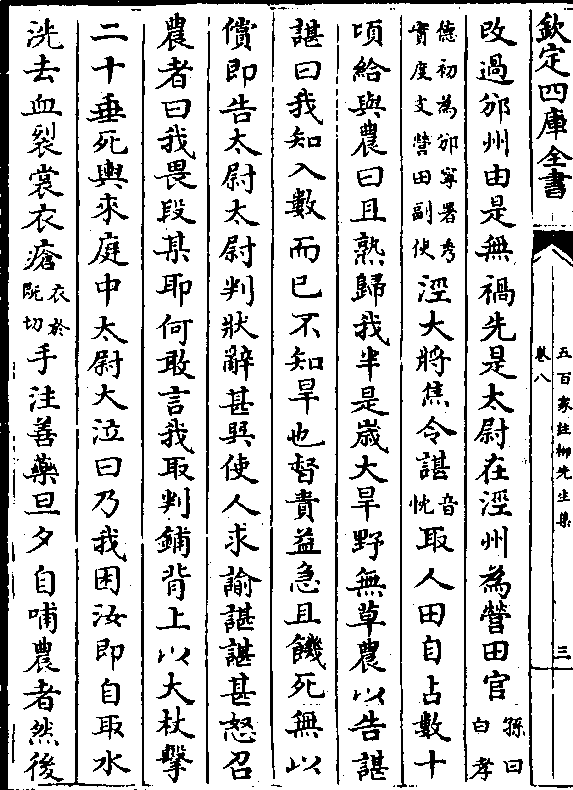 欽定四庫全書
五百家註柳先生集
卷八
三
改過邠州由是無禍先是太尉在涇州為營田官孫曰白孝
德初為邠寧署秀實度支營田副使涇大將焦令諶音忱取人田自占數十
頃給與農曰且熟歸我半是歲大旱野無草農以告諶
諶曰我知入數而已不知旱也督責益急且饑死無以
償即告太尉太尉判狀辭甚巽使人求諭諶諶甚怒召
農者曰我畏段某耶何敢言我取判鋪背上以大杖擊
二十垂死輿來庭中太尉大泣曰乃我困汝即自取水
洗去血裂裳衣瘡衣於既切手注善藥旦夕自哺農者然後